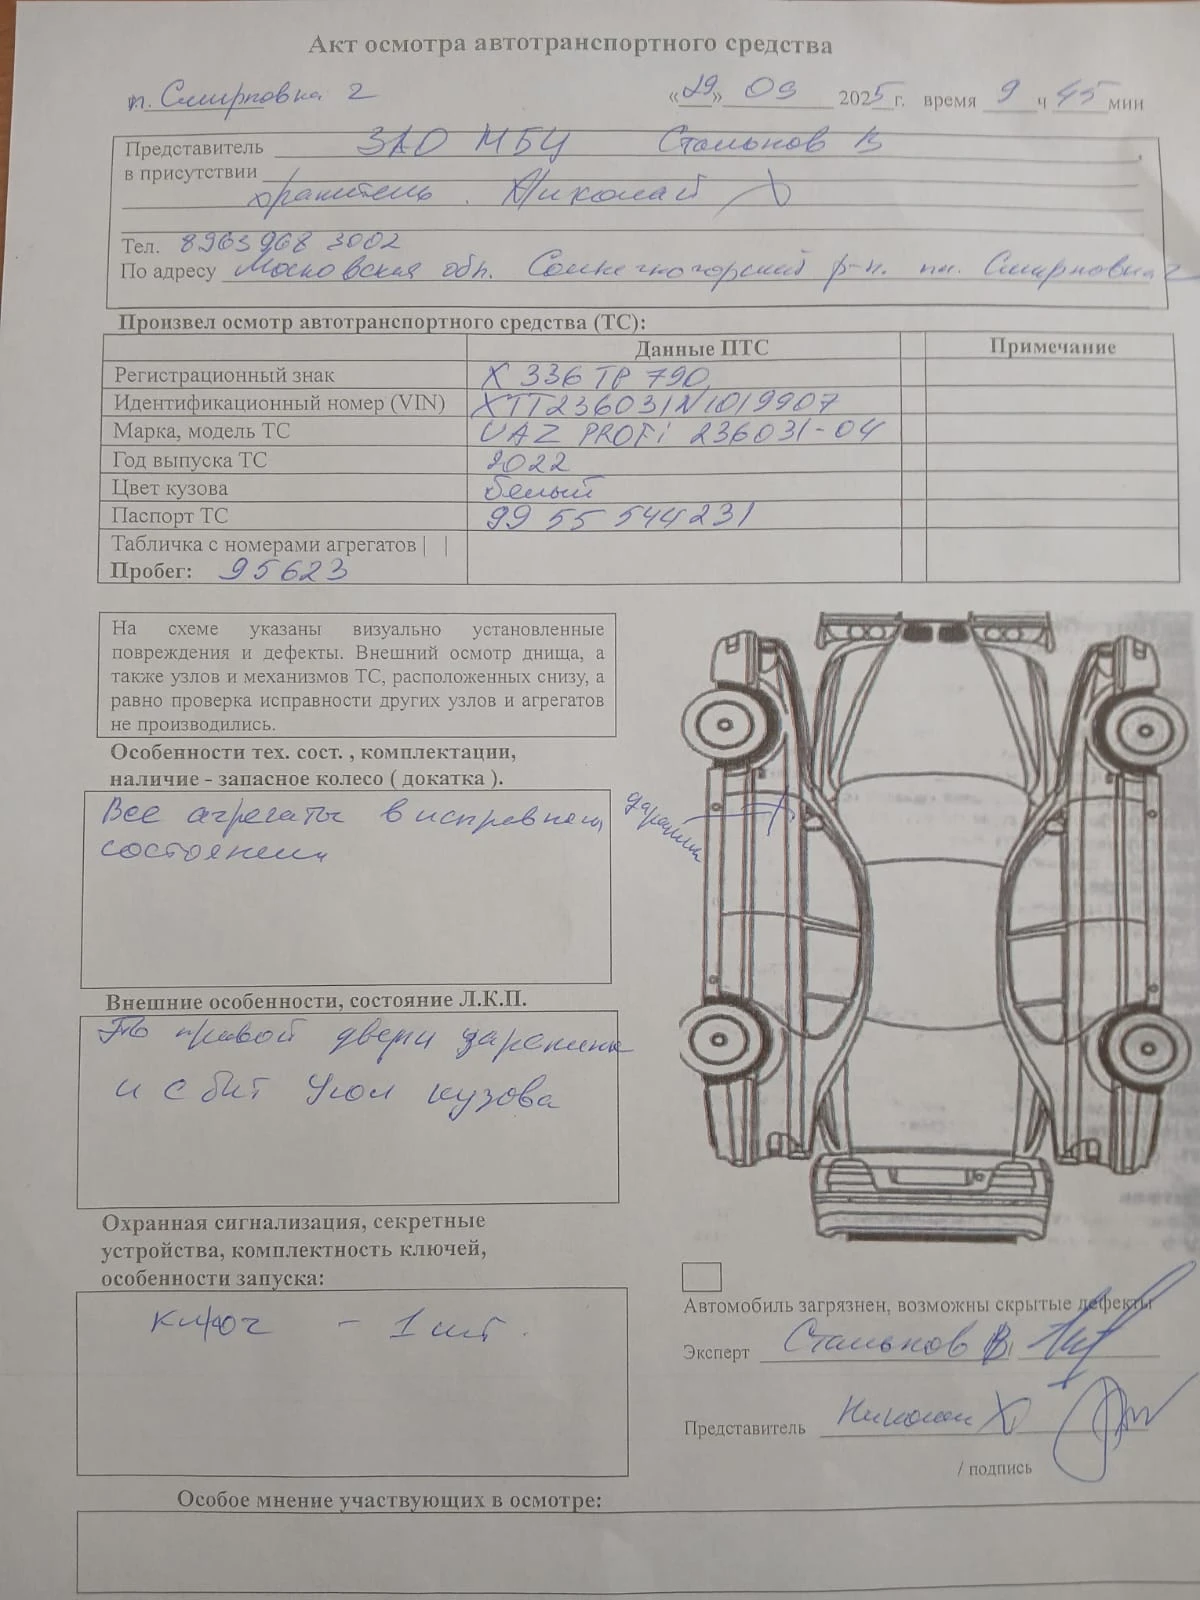 Акт осмотра автотранспортного средства
п. Смирновка 2 «29» 09 2025 г. время 9 ч 45 мин
Представитель ЗАО МБЦ Стальнов В
в присутствии
хранитель. Николай Х
Тел. 8963 968 3002
По адресу Московская обл. Солнечногорский р-н. пл. Смирновка 2
Произвел осмотр автотранспортного средства (ТС):
Данные ПТС Примечание
Регистрационный знак Х 336 ТР 790
Идентификационный номер (VIN) XTT236031N1019907
Марка, модель ТС UAZ PROFi 236031-04
Год выпуска ТС 2022
Цвет кузова белый
Паспорт ТС 99 55 544231
Табличка с номерами агрегатов | |
Пробег: 95623
На схеме указаны визуально установленные
повреждения и дефекты. Внешний осмотр днища, а
также узлов и механизмов ТС, расположенных снизу, а
равно проверка исправности других узлов и агрегатов
не производились.
Особенности тех. сост. , комплектации,
наличие - запасное колесо ( докатка ).
Все агрегаты в исправном
состоянии
царапина
Внешние особенности, состояние Л.К.П.
По правой двери царапина
и сбит угол кузова
Охранная сигнализация, секретные
устройства, комплектность ключей,
особенности запуска:
ключ - 1 шт.
Автомобиль загрязнен, возможны скрытые дефекты
Эксперт Стальнов В
Представитель Николай Х
/ подпись
Особое мнение участвующих в осмотре: